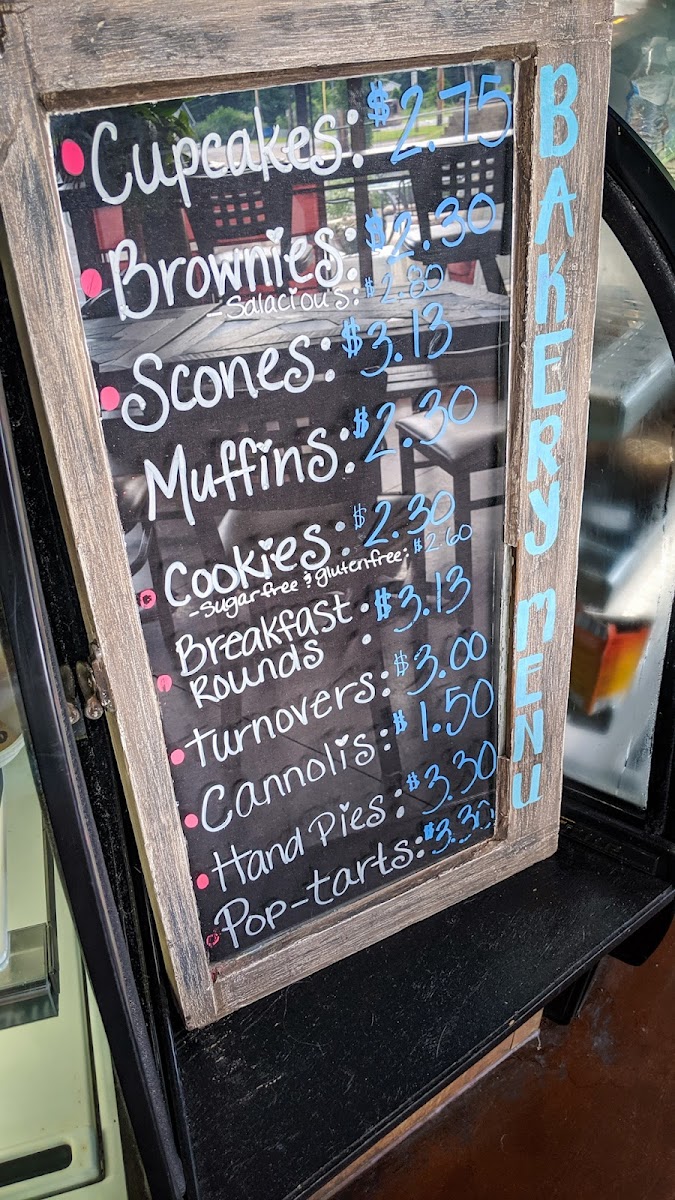 Cupcakes: $2.75
Brownies: $2.30
-Salacious: $2.80
Scones: $3.13
Muffins: $2.30
Cookies: $2.30
-Sugarfree & glutenfree: $2.60
Breakfast Rounds: $3.13
Turnovers: $3.00
Cannolis: $1.50
Hand Pies: $3.30
Pop-tarts: $3.30
BAKERY MENU